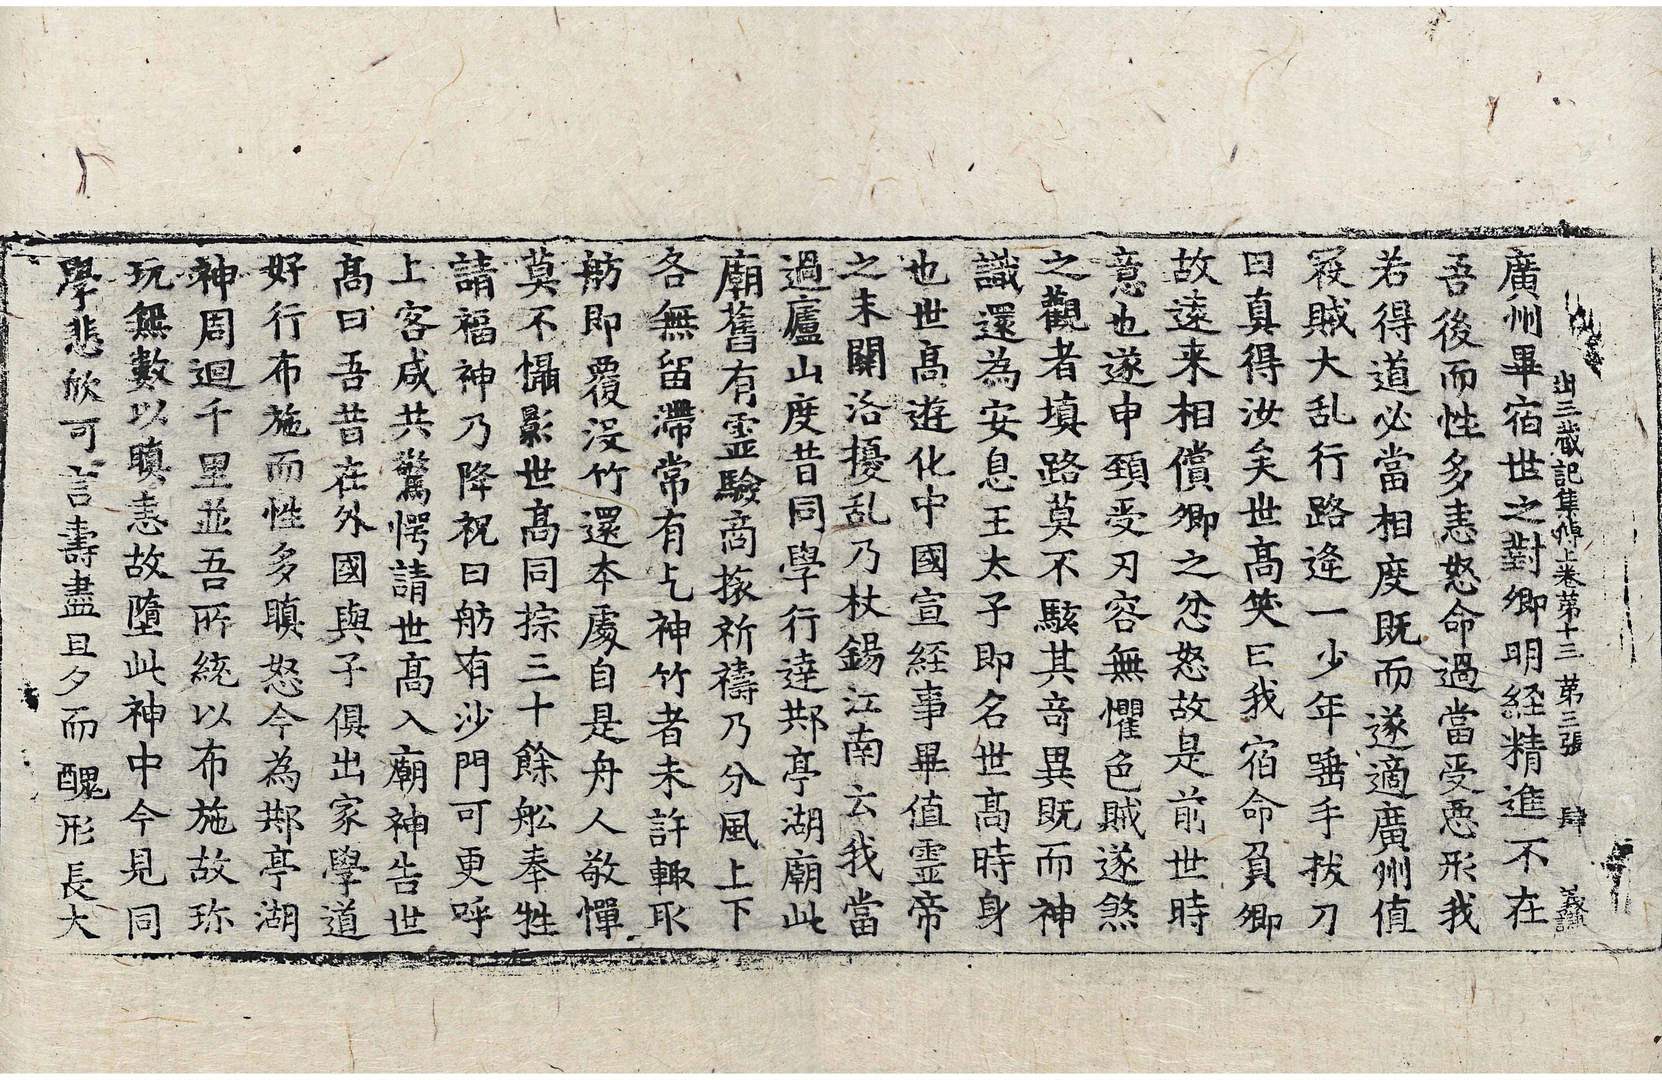 廣州畢宿世之對卿明経精進不在
出三蔵記集傳上卷苐十三 苐三張 肆
吾後而性多恚怒命過當受悪形我
若得道必當相度既而遂適廣州值
冦賊大乱行路逄一少年唾手拔刀
曰真得汝矣世髙笑曰我宿命負卿
故遠来相償卿之忿怒故是前世時
意也遂申頚受刃容無懼色賊遂煞
之觀者填路莫不駭其竒異既而神
識還為安息王太子即名世髙時身
也世髙遊化中國宣経事畢值霊帝
之末關洛擾乱乃杖錫江南云我當
過廬山度昔同學行達䢼亭湖廟此
廟舊有霊驗商旅祈禱乃分風上下
各無留滯常有乞神竹者未許輙取
舫即覆没竹還本處自是舟人敬憚
莫不懾影世髙同旅三十餘舩奉牲
請福神乃降祝曰舫有沙門可更呼
上客咸共驚愕請世髙入廟神告世
髙曰吾昔在外國與子俱出家學道
好行布施而性多瞋怒今為䢼亭湖
神周迴千里並吾所統以布施故珎
玩無數以瞋恚故墮此神中今見同
學悲欣可言壽盡旦夕而醜形長大